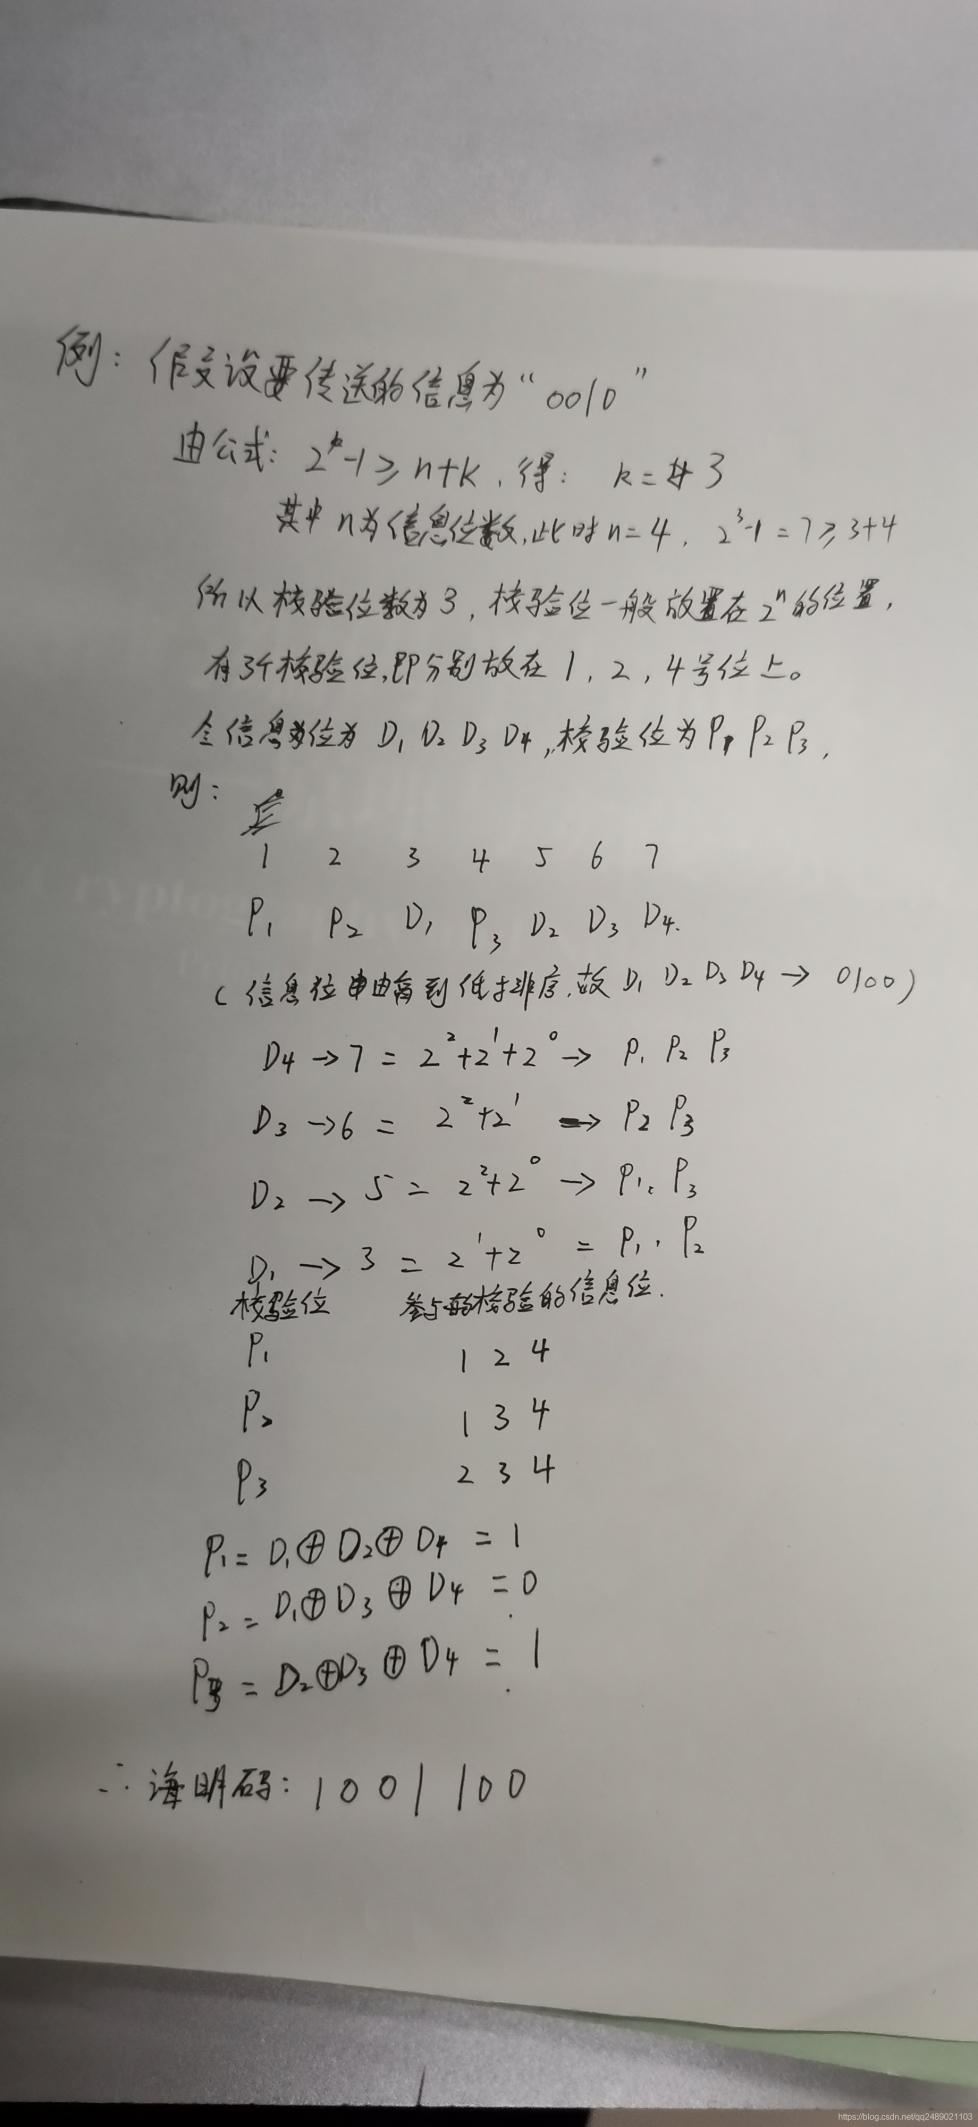 例: 假设要传送的信息为“0010”
由公式: 2^k-1≥n+k, 得: k=3
其中n为信息位数,此时n=4, 2^3-1=7≥3+4
所以校验位数为3, 校验位一般放置在2^n的位置,
有3个校验位,即分别放在1, 2, 4号位上。
令信息位为 D₁ D₂ D₃ D₄,校验位为P₁ P₂ P₃,
则:
1 2 3 4 5 6 7
P₁ P₂ D₁ P₃ D₂ D₃ D₄.
(信息位由高到低排序,故 D₁ D₂ D₃ D₄ → 0100)
D₄ → 7 = 2^2+2^1+2^0 → P₁ P₂ P₃
D₃ → 6 = 2^2+2^1 → P₂ P₃
D₂ → 5 = 2^2+2^0 → P₁, P₃
D₁ → 3 = 2^1+2^0 = P₁, P₂
校验位 参与的校验的信息位.
P₁ 1 2 4
P₂ 1 3 4
P₃ 2 3 4
P₁ = D₁⊕D₂⊕D₄ = 1
P₂ = D₁⊕D₃⊕D₄ = 0
P₃ = D₂⊕D₃⊕D₄ = 1
∴ 海明码: 1001100
https://blog.csdn.net/qq2489021103